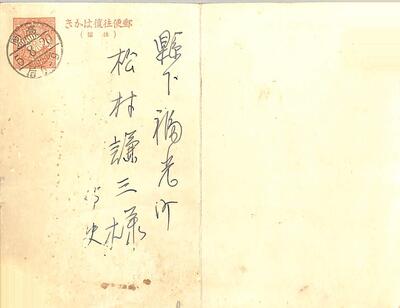 郵便往復はかき
(往信)
縣下福光町
松村謙三様
侍史